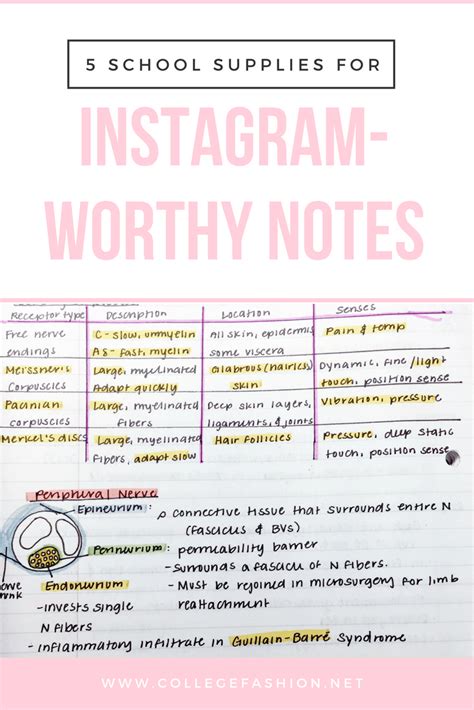 5 SCHOOL SUPPLIES FOR
INSTAGRAM-
WORTHY NOTES
Receptor type Description Location Senses
Free nerve C - slow, unmyelin All skin, epidermis, Pain & temp
endings Aδ - fast, myelin some viscera
Meissner's Large, myelinated Glabrous (hairless) Dynamic, fine/light
Corpuscles Adapt quickly skin touch, position sense
Pacinian Large, myelinated Deep skin layers, Vibration, pressure
corpuscles fibers ligaments, & joints
Merkel's discs Large, myelinated Hair follicles Pressure, deep static
fibers, adapt slow touch, position sense
Peripheral Nerve
Epineurium: connective tissue that surrounds entire N
(fascicles & BVs)
Perineurium: permeability barrier
- surrounds a fascicle of N fibers.
Endoneurium - Must be rejoined in microsurgery for limb
- invests single reattachment
N fibers
- inflammatory infiltrate in Guillain-Barré Syndrome
WWW.COLLEGEFASHION.NET